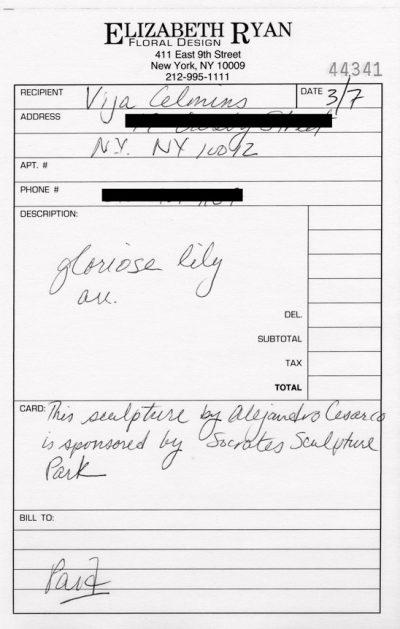 ELIZABETH RYAN
FLORAL DESIGN
411 East 9th Street
New York, NY 10009
212-995-1111
44341
RECIPIENT Vija Celmins DATE 3/7
ADDRESS Street
N.Y. NY 10012
APT. #
PHONE #
DESCRIPTION:
gloriose lily
arr.
DEL.
SUBTOTAL
TAX
TOTAL
CARD: This sculpture by Alejandro Cesarco
is sponsored by Socrates Sculpture
Park
BILL TO:
Paid